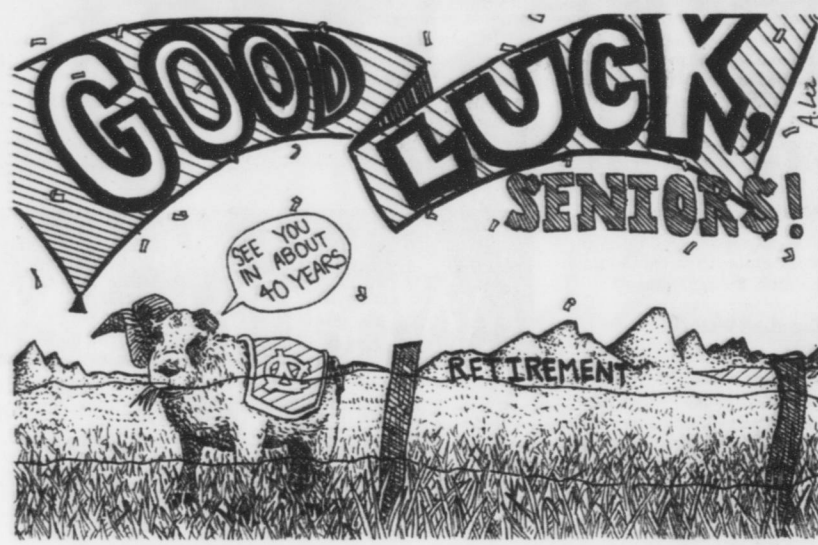 GOOD
LUCK,
SENIORS!
A. Lee
SEE YOU
IN ABOUT
40 YEARS
RETIREMENT